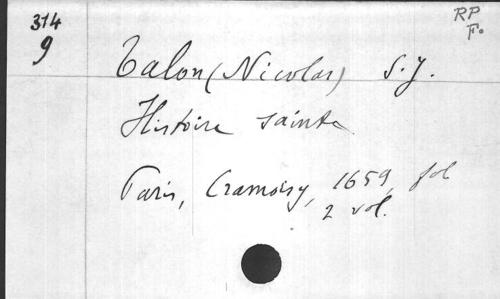 314
9
RP
Fo
Talon (Nicolas) S.J.
Histoire sainte
Paris, Cramoisy, 1659, fol
2 vol.